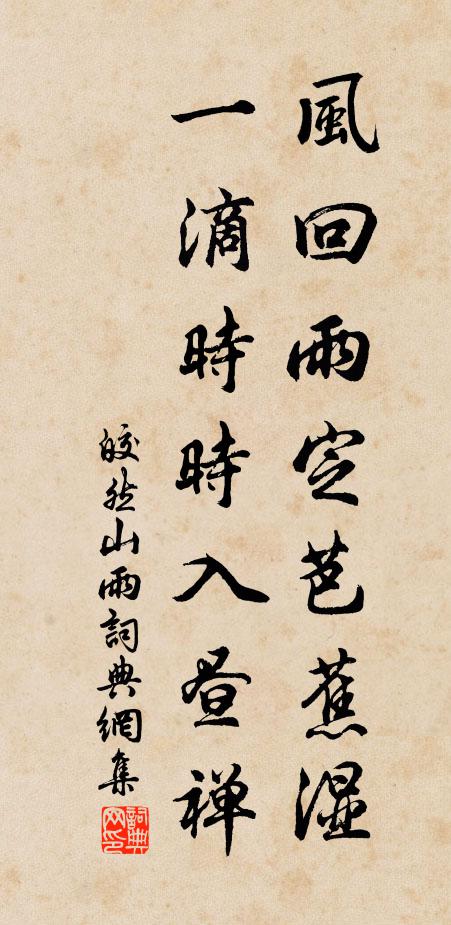 風回雨定芭蕉湿
一滴時時入昼禅
皎然山雨詞典網集
詞典网印